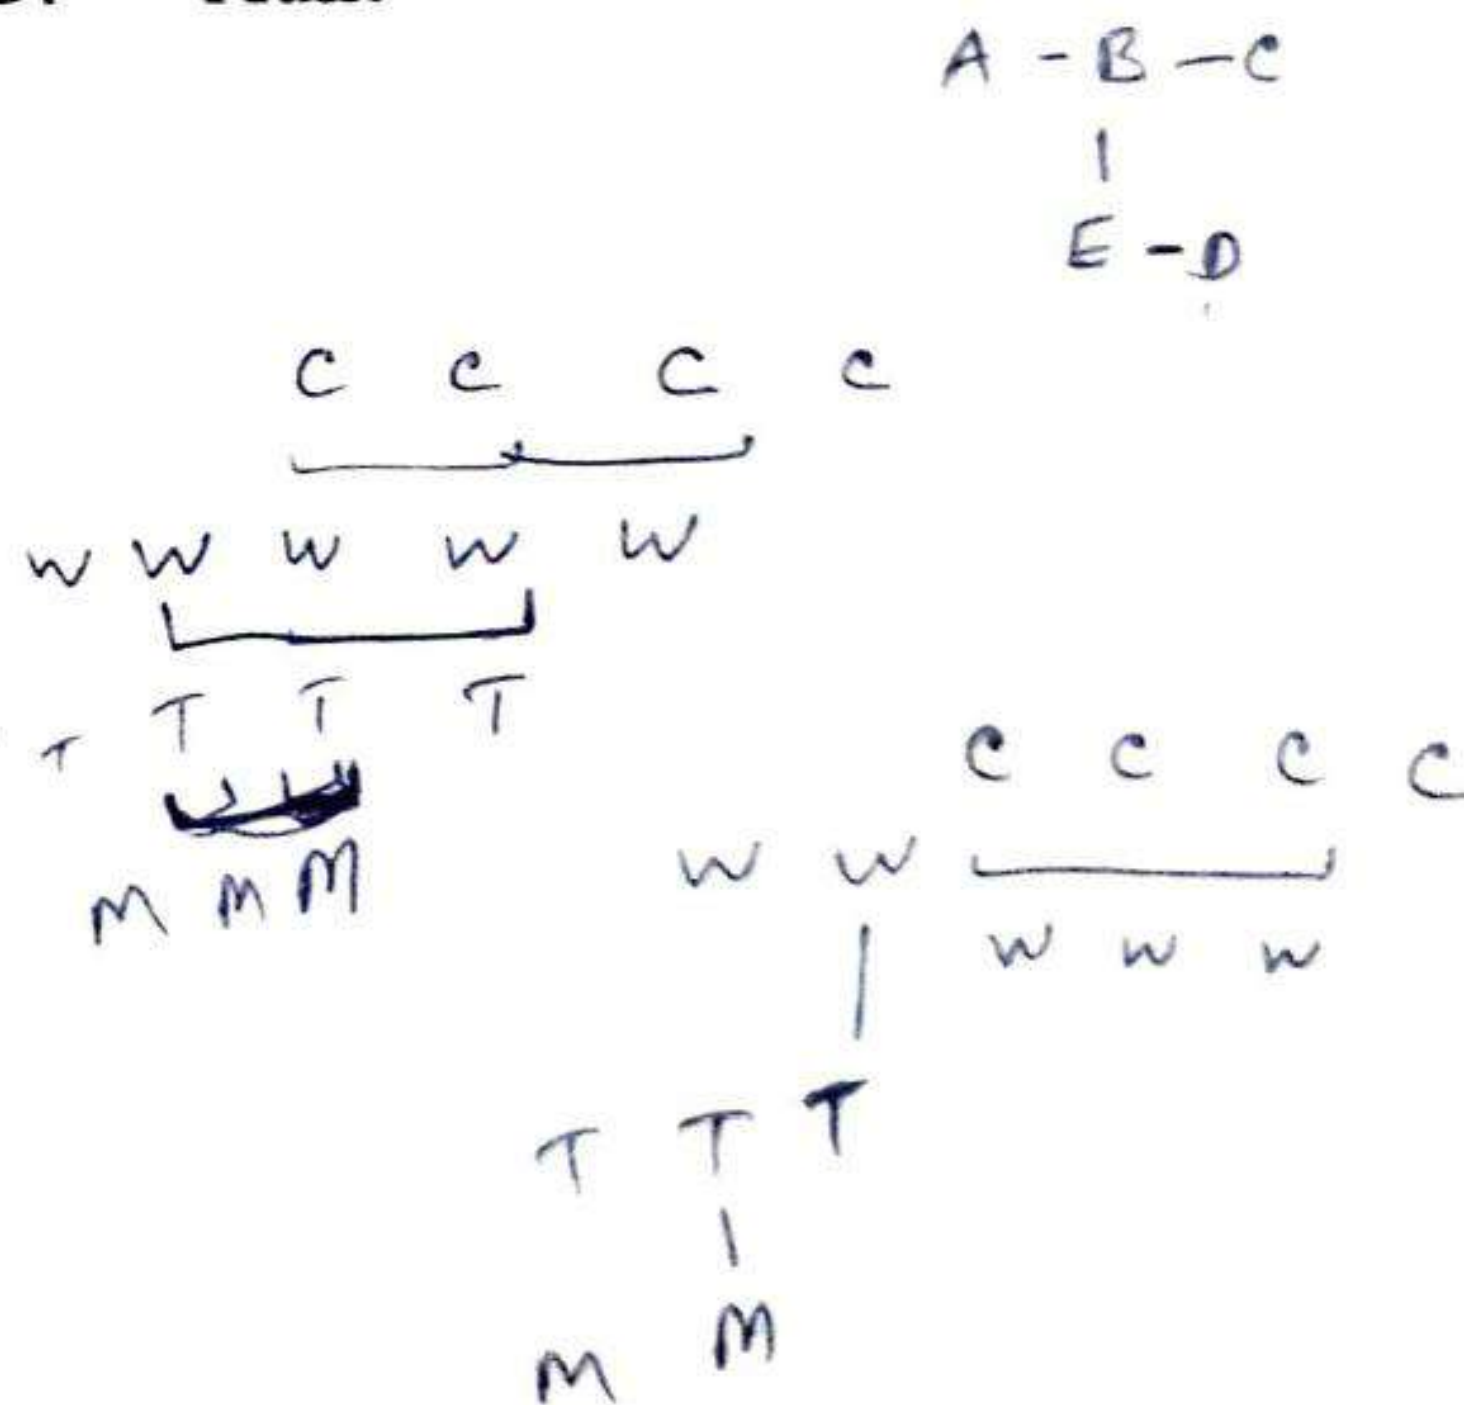 A - B - C
E - D
C C C C
W W W W W
T T T T
M M M
C C C C
W W
W W W
T T T
M M